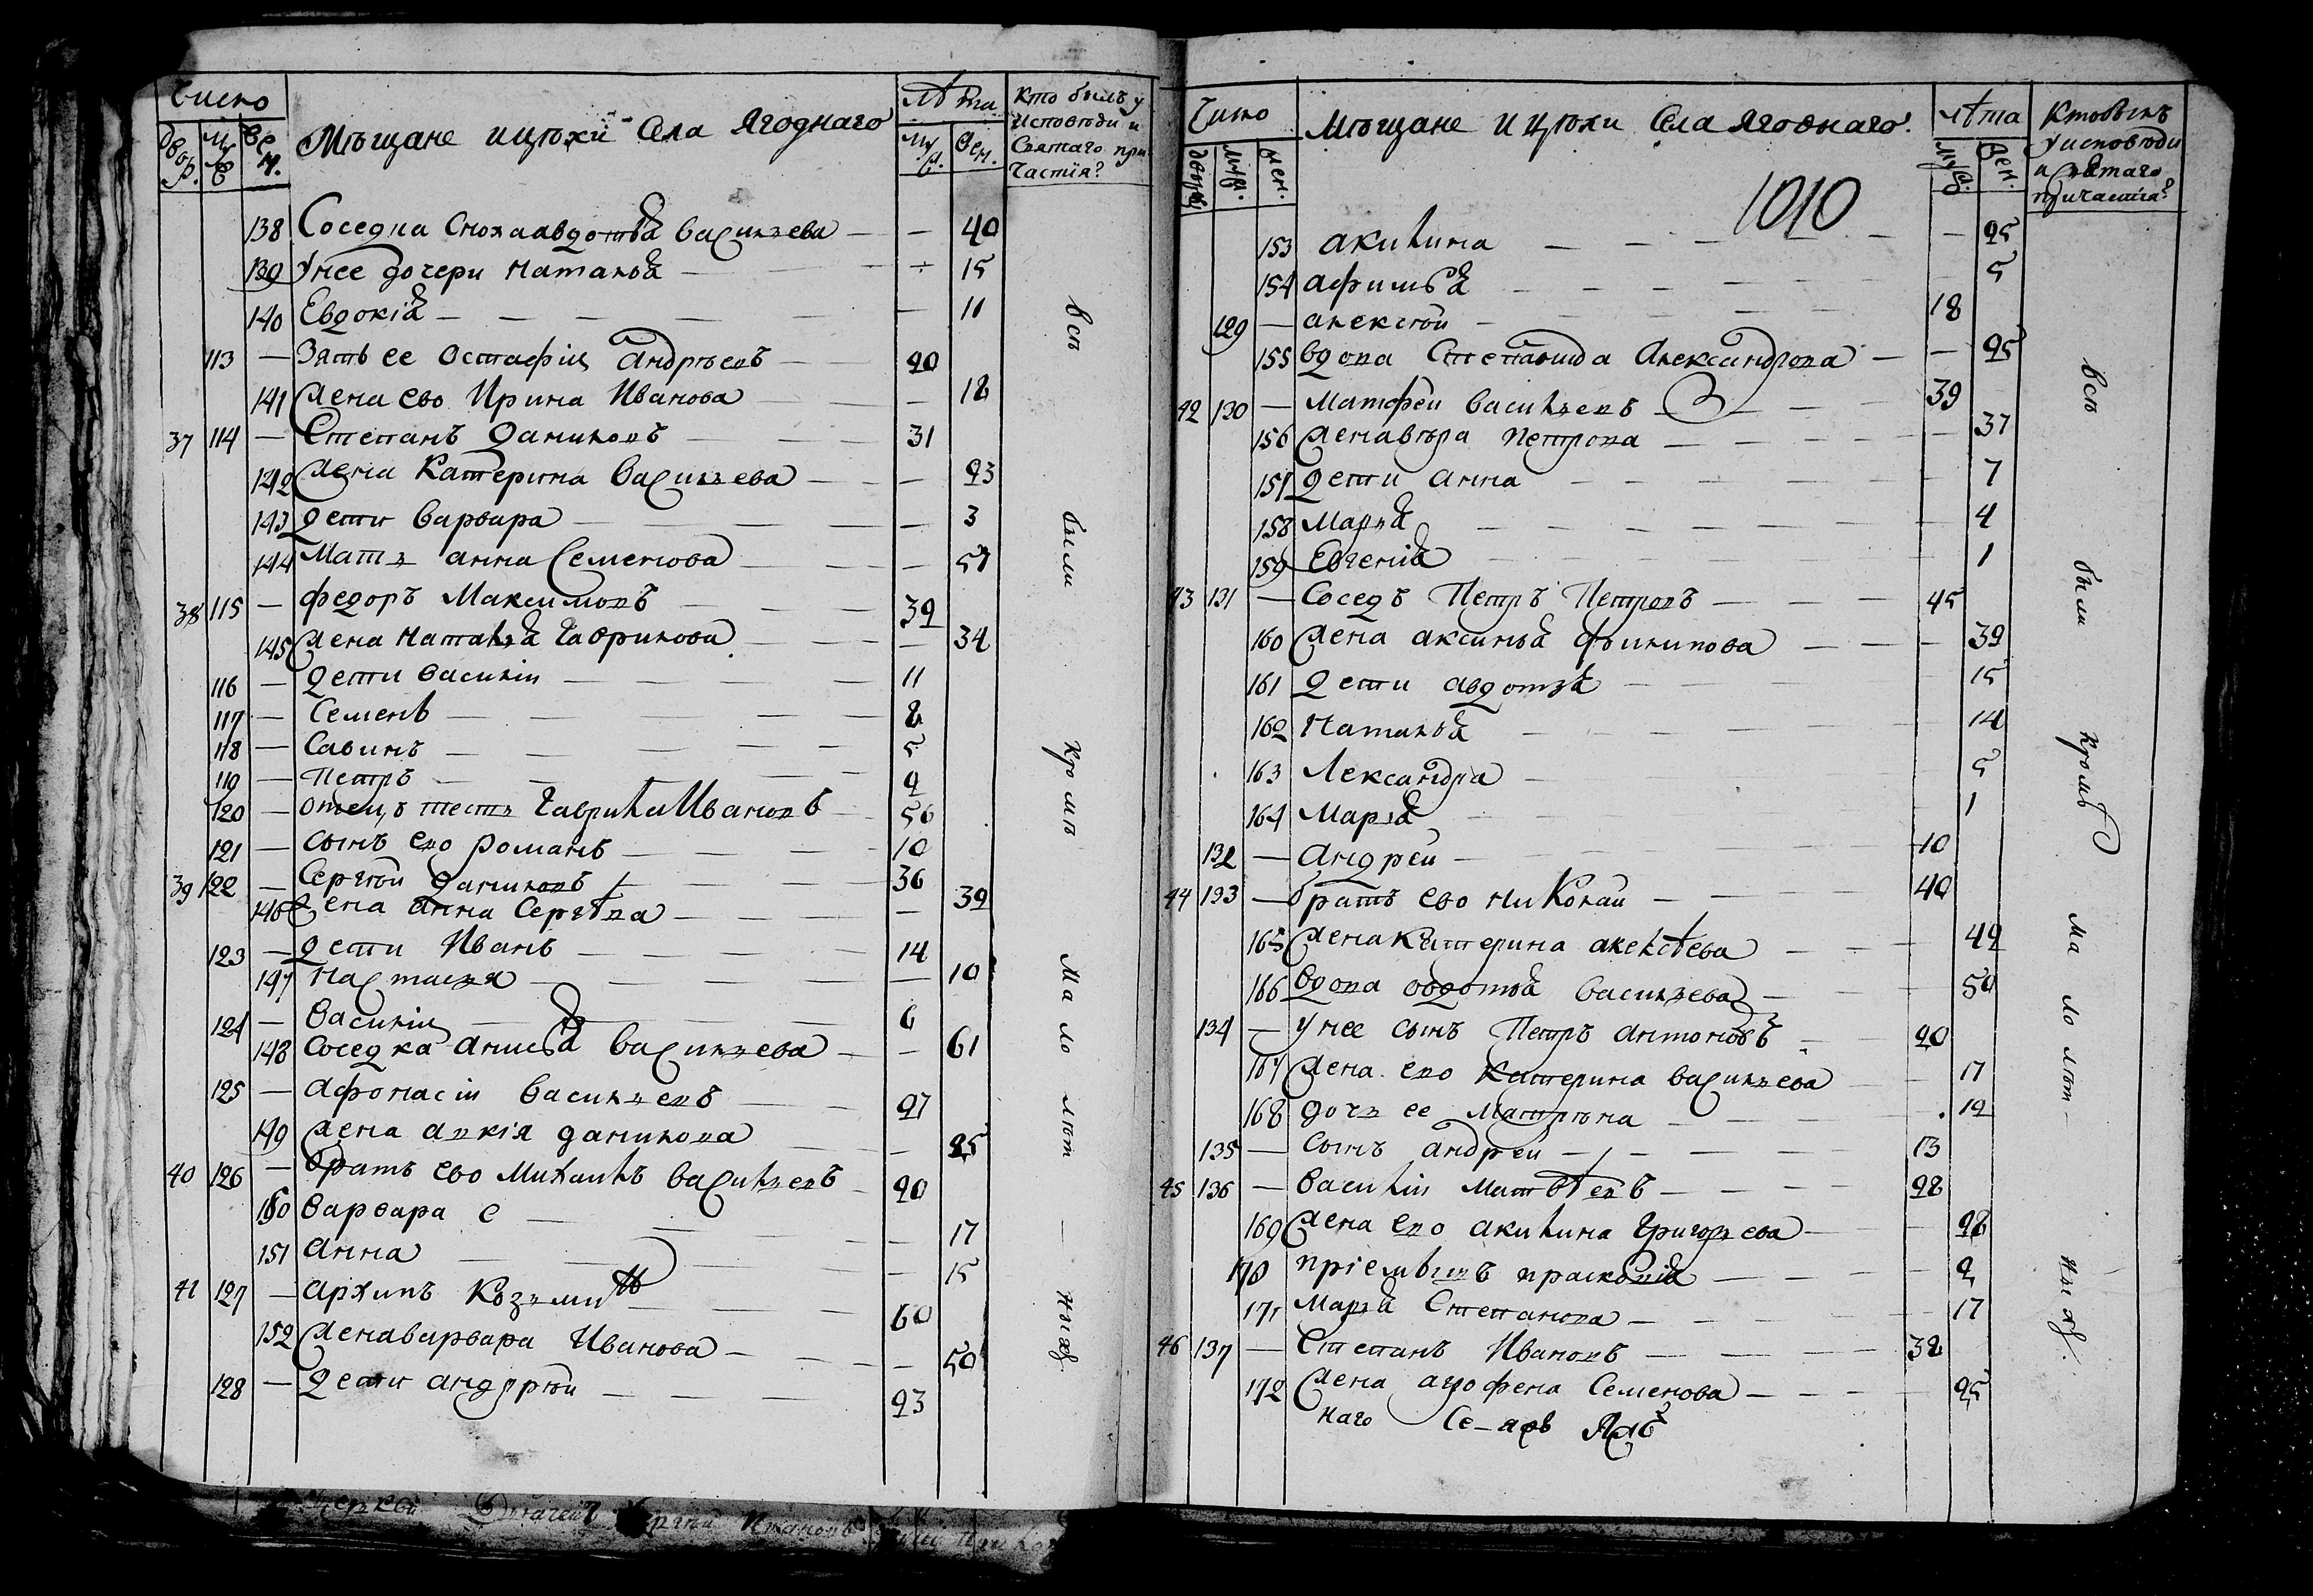 Число
Мѣщане и цѣхи Села Ягоднаго
лѣта
Кто былъ у
Исповѣди и
Святаго при
частїя?
двор.
муж
жен.
муж.
жен.
138 Соседка Сноха авдотья васильева — — 40
139 у нее дочери наталья — 15
140 Евдокїя — 11
113 — Зять ее Остафїи андрѣевъ — 20
141 жена ево Ирина Иванова — 18
37 114 — Степанъ даниловъ — 31
142 жена Катерина васильева — 23
143 дети варвара — 3
144 Мать анна Семенова — 57
38 115 — федоръ Максимовъ — 39
145 жена наталья гаврилова — 34
116 — дети василїи — 11
117 — Семенъ — 8
118 — Савинъ — 5
119 — Петръ — 2
120 — отецъ тесть гаврила Ивановъ — 56
121 — сынъ ево романъ — 10
39 122 — Сергѣи даниловъ — 36
146 жена анна Сергѣва — 39
123 — дети Иванъ — 14
147 настасья — 10
124 — василїи — 6
148 соседка анисья васильева — 61
125 — афонасїи васильевъ — 27
149 жена данилова — 25
40 126 — братъ ево Михаилъ васильевъ — 20
150 варвара — 17
151 анна — 15
41 127 — архипъ Козьминъ — 60
152 жена варвара Иванова — 50
128 — дети андрѣи — 23
всѣ были кромѣ малолѣт — ныхъ
Число
Мѣщане и цѣхи Села Ягоднаго.
лѣта
Кто былъ
у исповѣди
и святаго
причастїя?
муж.
жен.
муж.
жен.
1010
153 акилина — 25
154 афимья — 5
129 — алексѣи — 18
155 вдова Степанида Александрова — 25
42 130 — матфеи васильевъ — 39
156 жена вѣра петрова — 37
157 дети анна — 7
158 марья — 4
159 Евгенїя — 1
43 131 — Соседъ Петръ Петровъ — 45
160 жена аксинья филипова — 39
161 дети авдотья — 15
162 наталья — 14
163 Лександра — 5
164 марья — 1
132 — андреи — 10
44 133 — братъ ево николаи — 40
165 жена Катерина алексѣева — 42
166 вдова овдотья васильева — 50
134 — у нее сынъ Петръ антоновъ — 20
167 жена ево катерина васильева — 17
168 дочь ее матрѣна — 12
135 — сынъ андреи — 13
45 136 — василїи матвѣевъ — 28
169 жена ево акилина григорьева — 28
170 прїемышъ — 2
171 марья Степанова — 17
46 137 — Степанъ Ивановъ — 32
172 жена агофена Семенова — 25
наго
всѣ были кромѣ малолѣт — ныхъ.